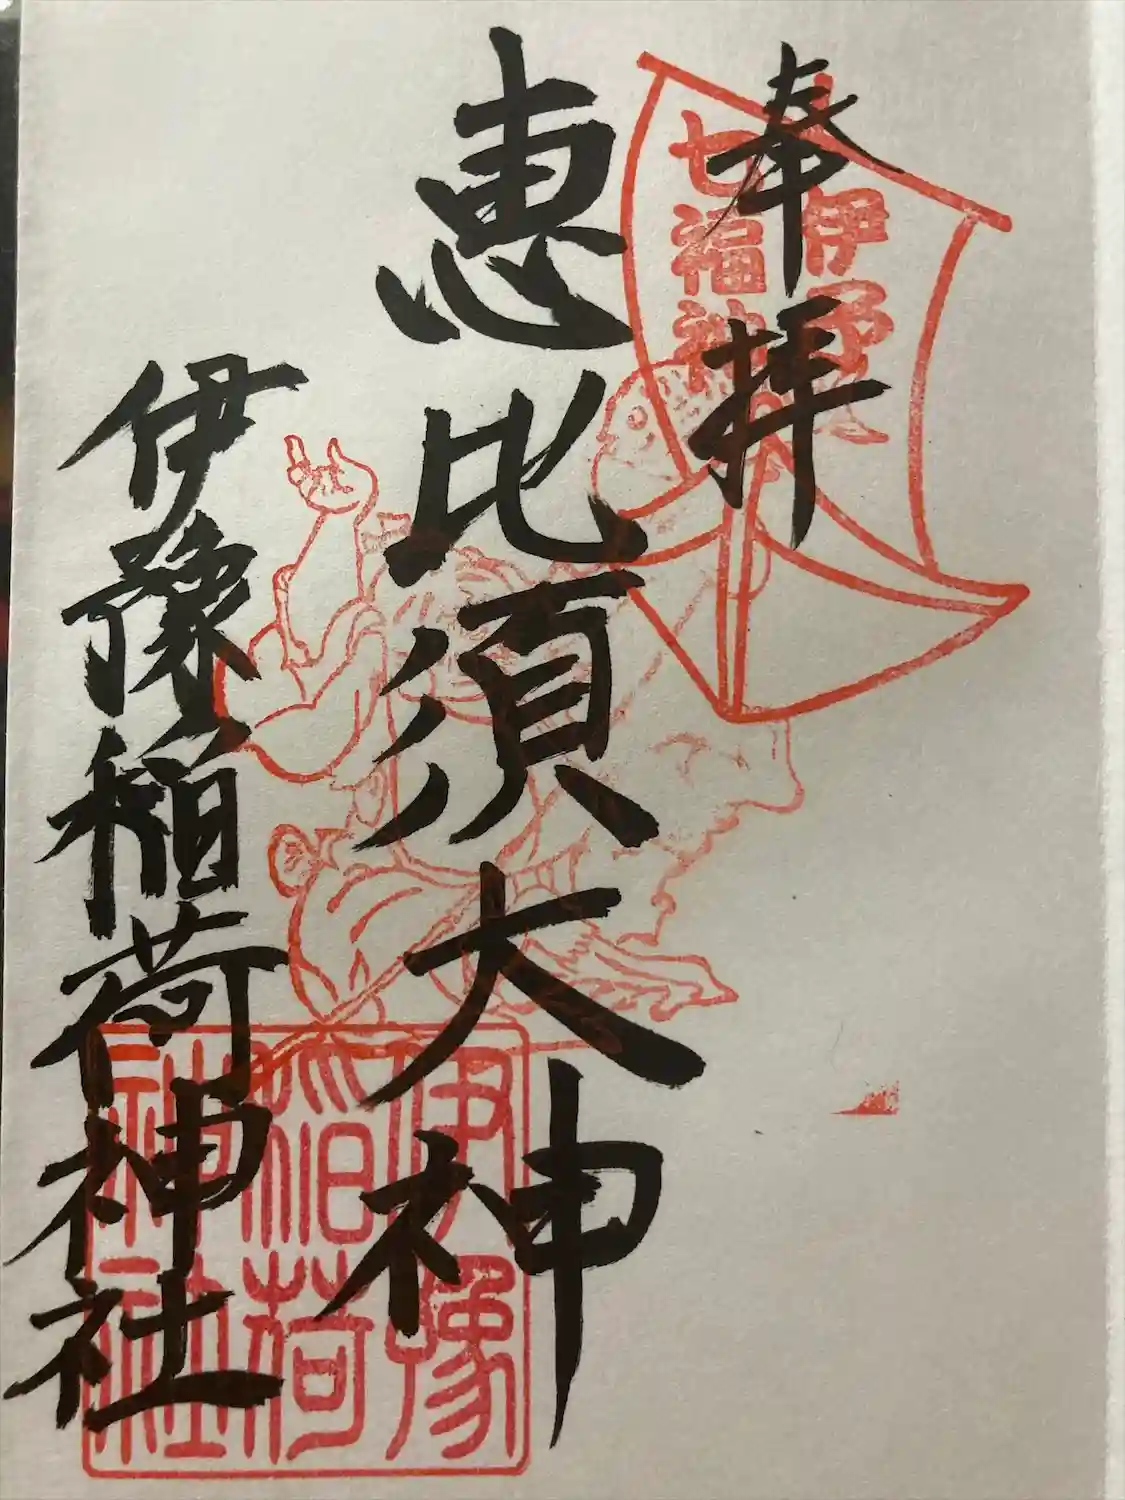 奉拝
伊予
七福神
恵比須大神
伊豫稲荷神社
伊豫
稲荷
神社